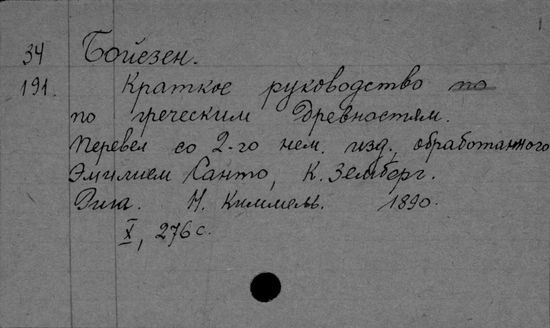 34 Бойезен.
191. Краткое руководство по
по греческим древностям.
Перевел со 2-го нем. изд., обработанного
Эмилием Санто, К. Земберг.
Рига. Н. Киммель. 1890.
X, 276 с.